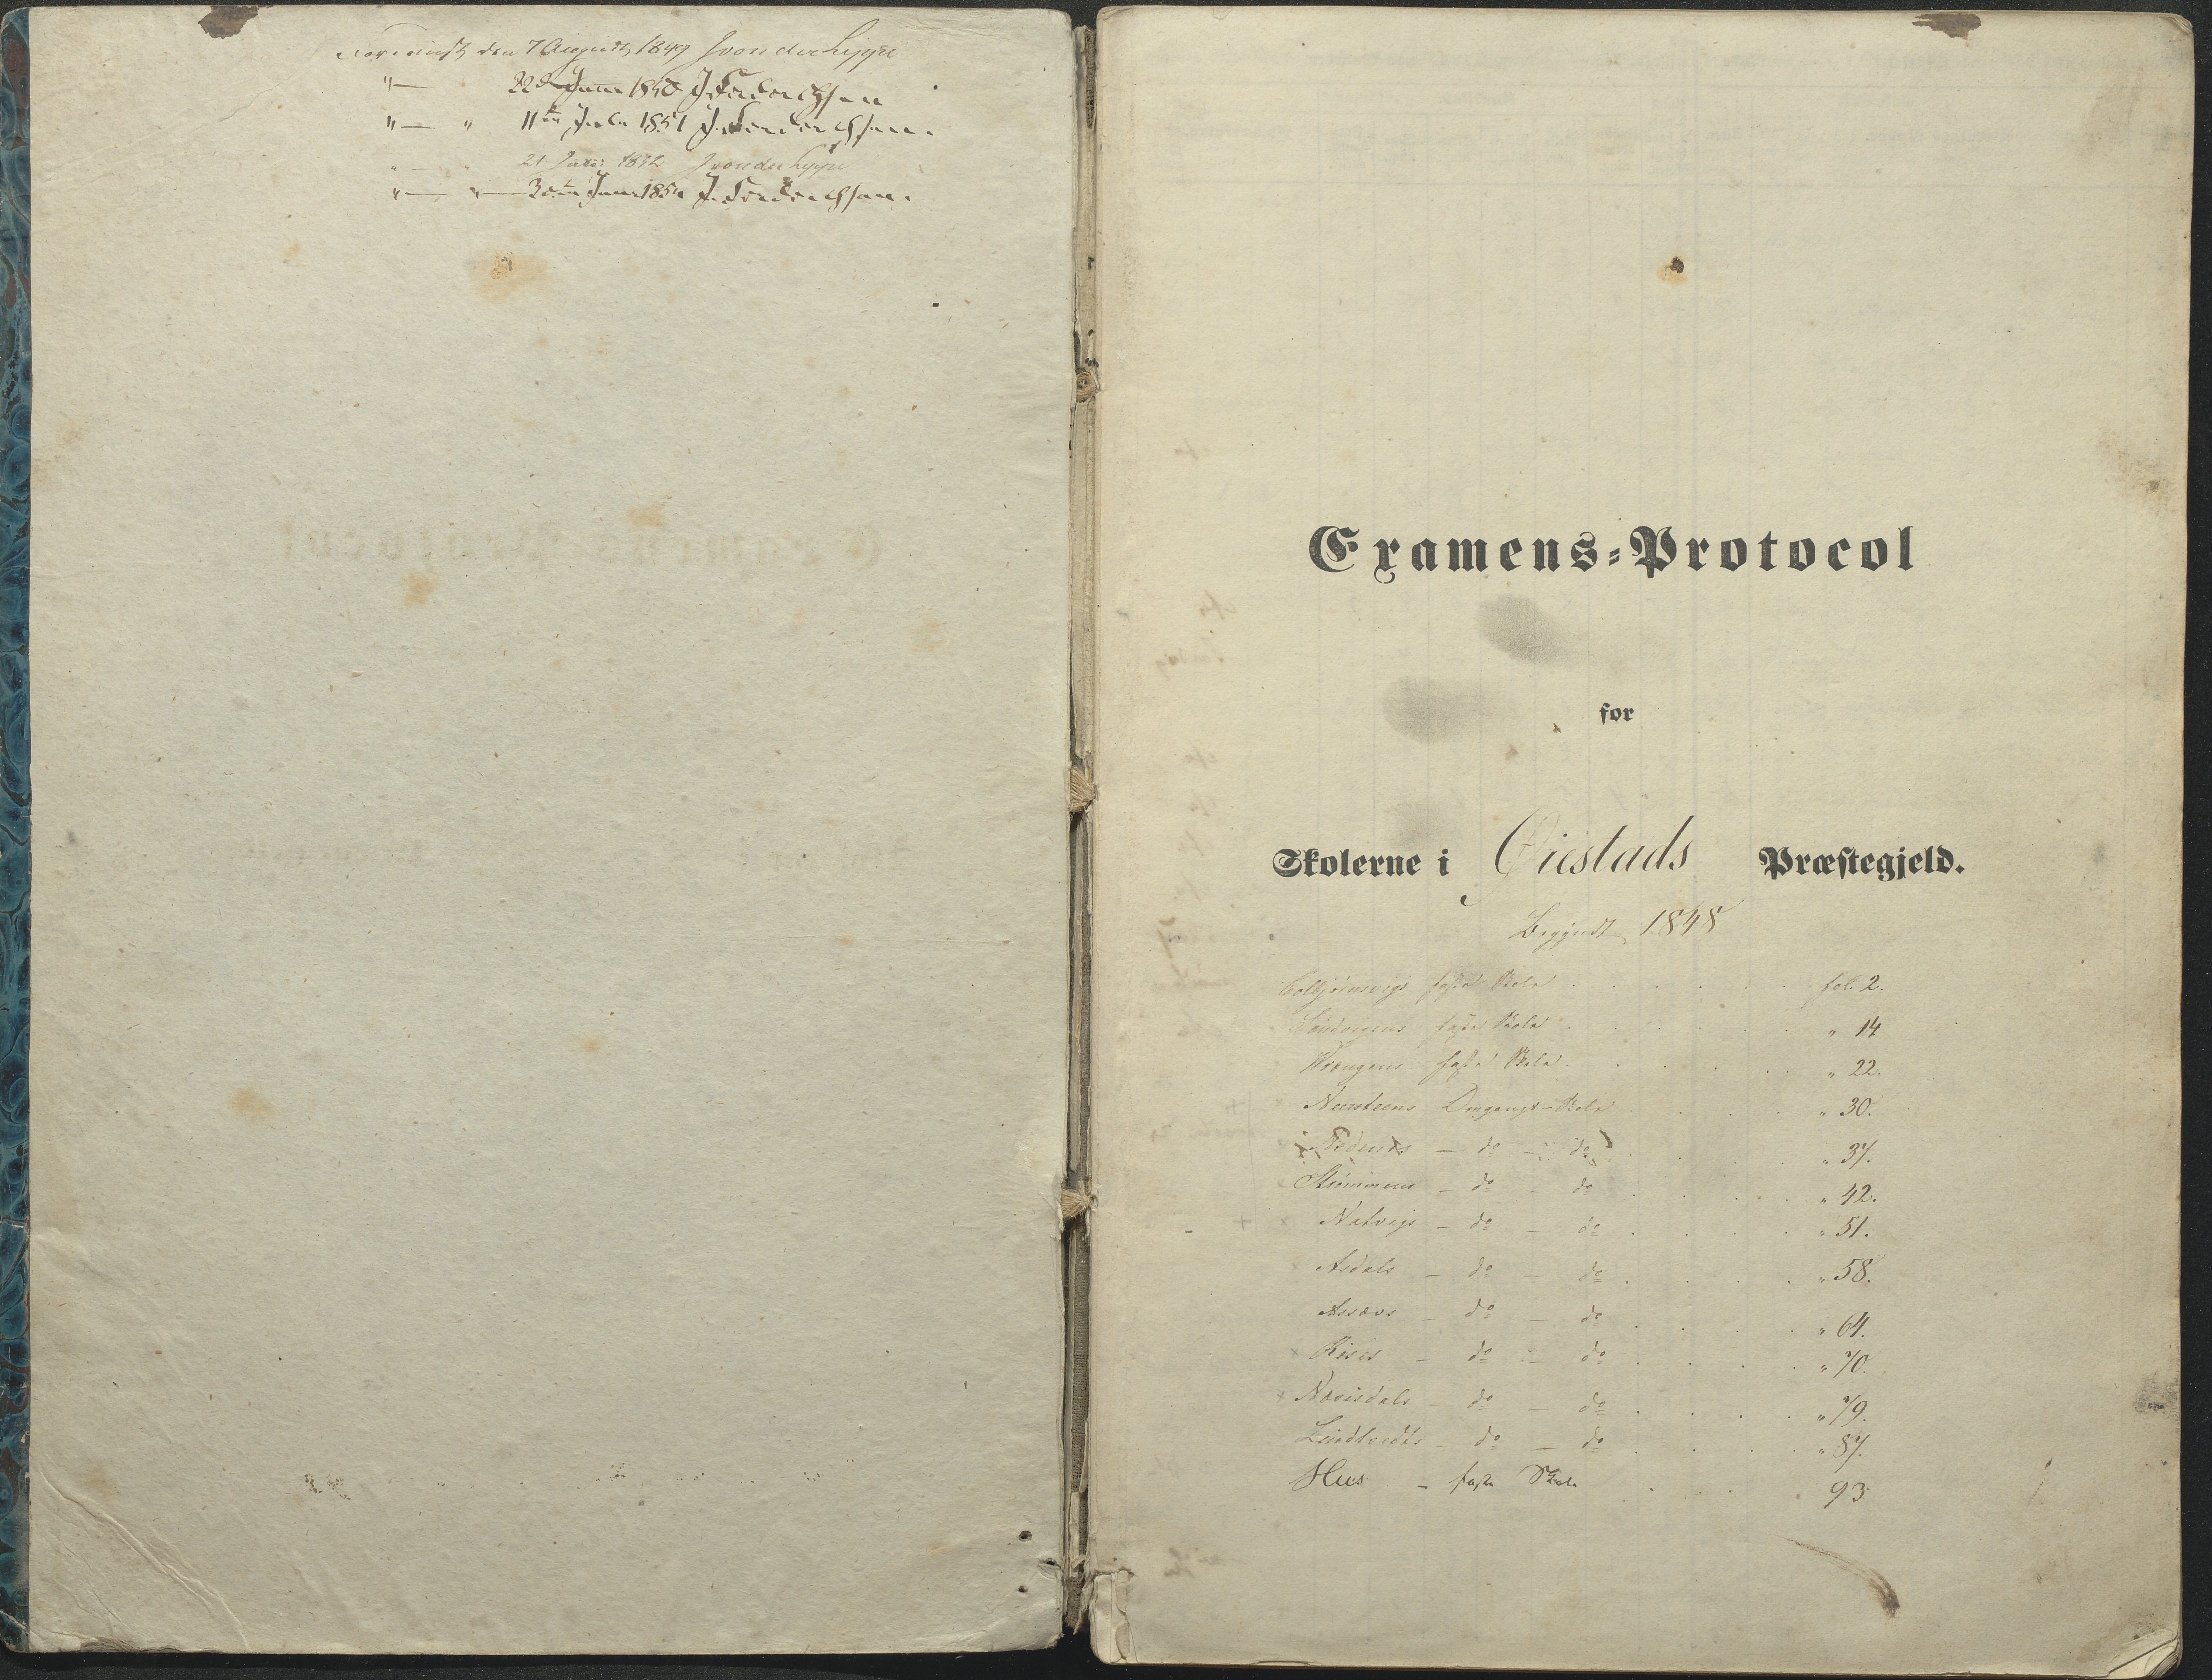 Foreviist den 7 August 1849 J von der Lippe
"— 22de Juni 1850 J. Frederichsen
"— " 11te Juli 1851 J. Frederichsen.
" — " 21 Juni 1852 J von der Lippe
"— "— 30te Juni 185 J. Frederichsen.
Examens-Protocol
for
Skolerne i Øiestads Præstegjeld.
Begyndt 1848
Colbjörnsvigs faste Skole . . . . . fol. 2.
Sandvigens faste Skole . . . . " 14
Vrængens faste Skole . . . . " 22.
Neersteens Omgangs-Skole . . . " 30.
Nedenes — do — do . . . " 37.
Strömmens — do — do . . . " 42.
× Natvigs — do — do . . . " 51.
× Asdals — do — do . . . " 58.
Assævs — do — do . . . " 64.
× Rises — do — do . . . " 70.
× Nævisdals — do — do . . . " 79.
Lindtvedts — do — do . . . " 87.
Hus — faste Skole . . . 93